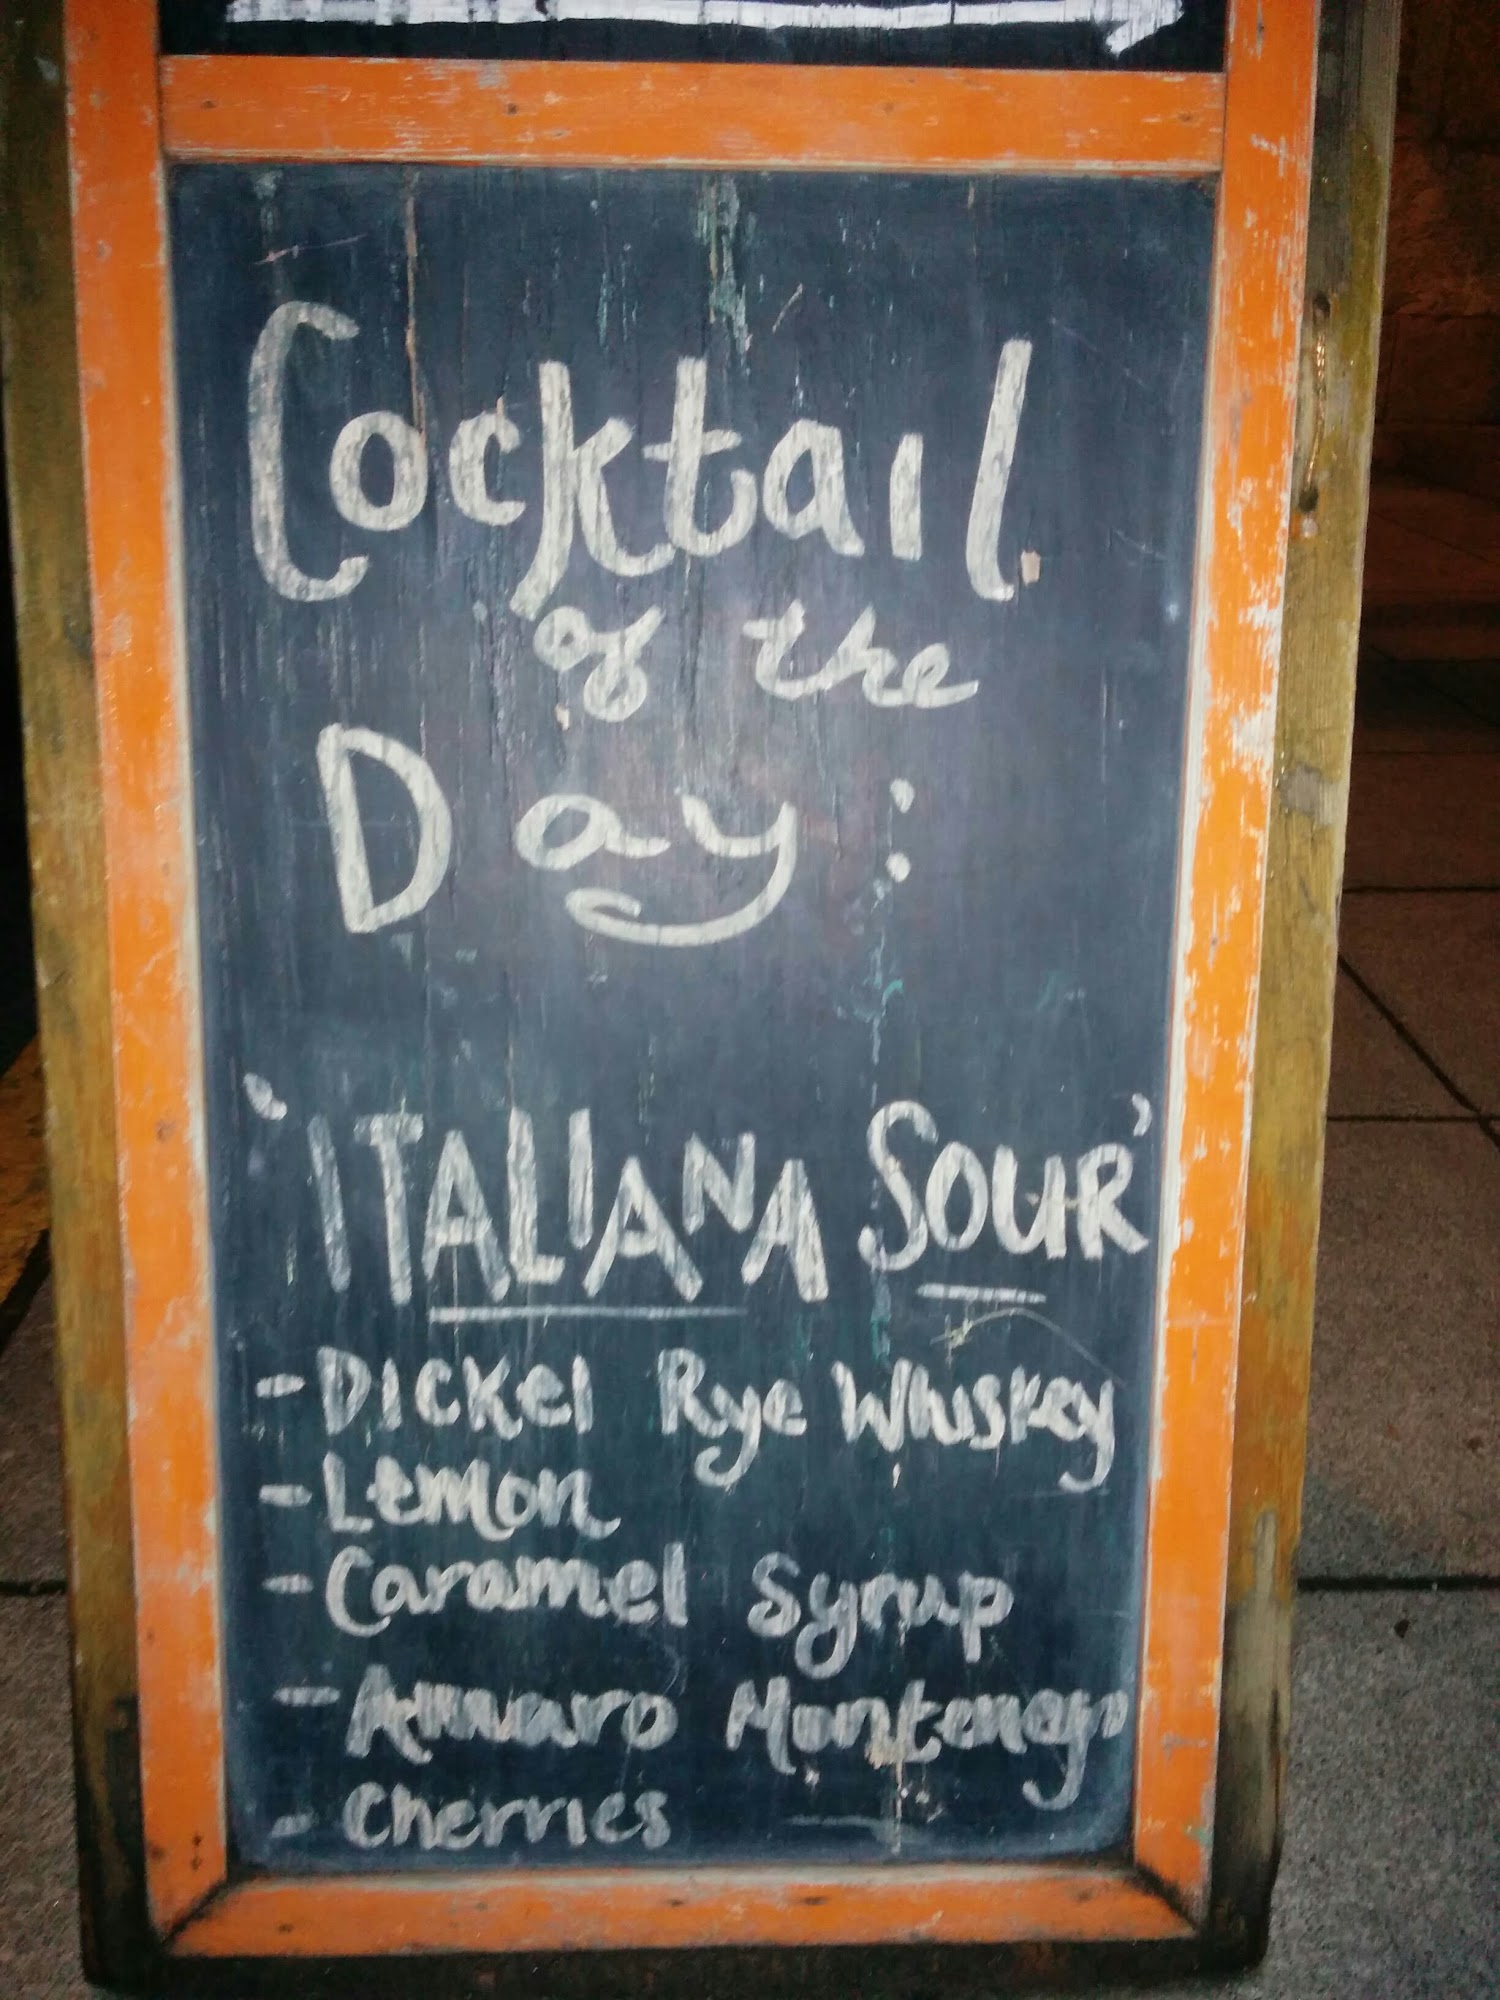 Cocktail
of the
Day:
'ITALIANA SOUR'
- Dickel Rye Whiskey
- Lemon
- Caramel Syrup
- Amaro Montenegro
- Cherries